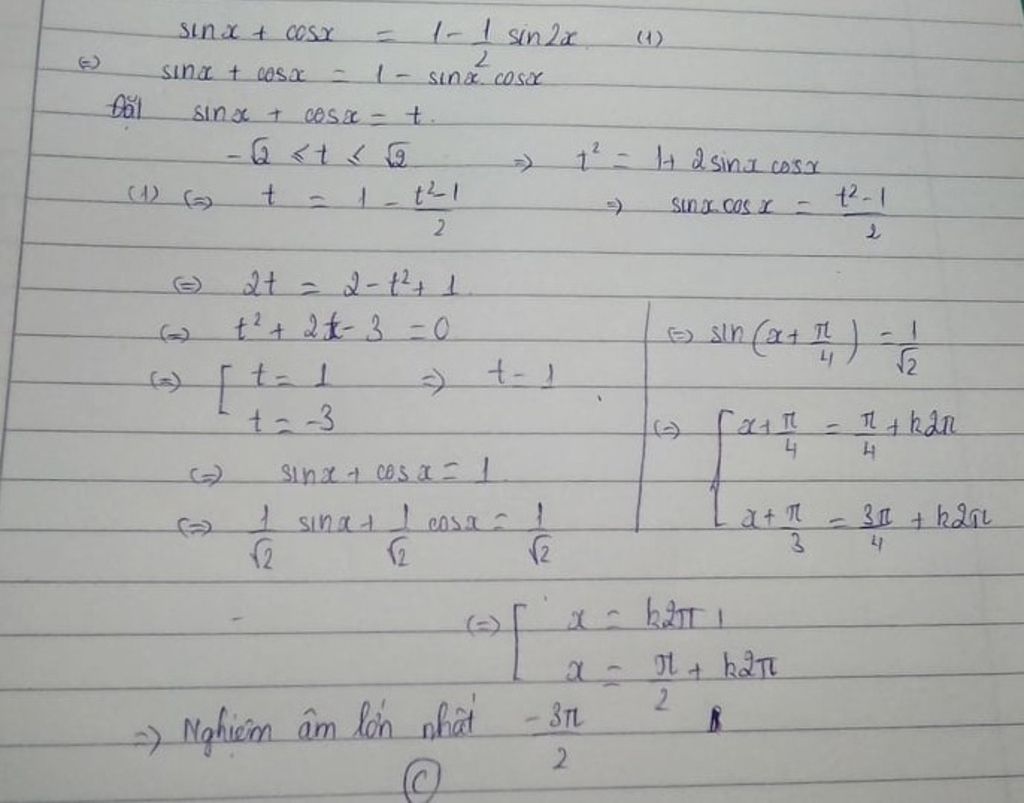 sinx + cosx = 1 - 1/2 sin2x (1)
(=) sinx + cosx = 1 - sinx.cosx
Đặt sinx + cosx = t.
-√2 ≤ t ≤ √2 => t² = 1 + 2sinx cosx
(1) (=) t = 1 - (t²-1)/2 => sinx.cosx = (t²-1)/2
(=) 2t = 2 - t² + 1
(=) t² + 2t - 3 = 0
(=) [ t = 1 => t = 1
t = -3
(=) sinx + cosx = 1
(=) 1/√2 sinx + 1/√2 cosx = 1/√2
(=) sin(x + π/4) = 1/√2
(=) [ x + π/4 = π/4 + k2π
x + π/3 = 3π/4 + k2π
(=) [ x = k2π
x = π/2 + k2π
=> Nghiệm âm lớn nhất -3π/2
C